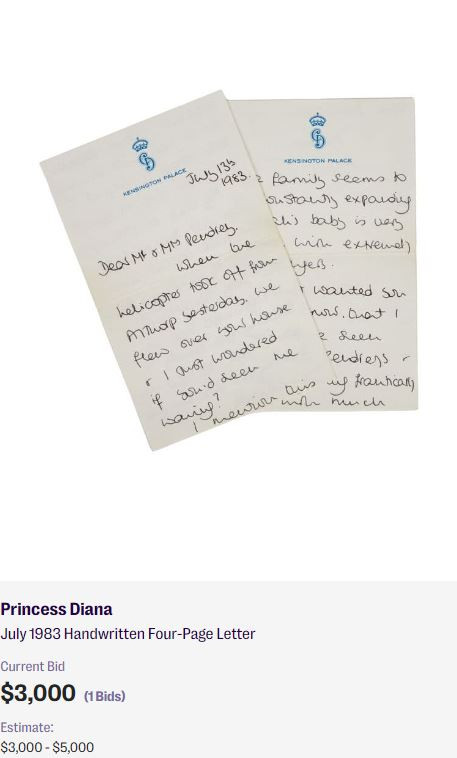 KENSINGTON PALACE
July 13th
1983.
Dear Mr & Mrs Pendrey,
When the
helicopter took off from
Althorp yesterday, we
flew over your house
& I just wondered
if you'd seen me
waving?
I mention this
KENSINGTON PALACE
family seems to
constantly expanding
this baby is very
with extremely
wanted you
now. that I
seen
Pendreys &
frantically
with much
Princess Diana
July 1983 Handwritten Four-Page Letter
Current Bid
$3,000 (1 Bids)
Estimate:
$3,000 - $5,000